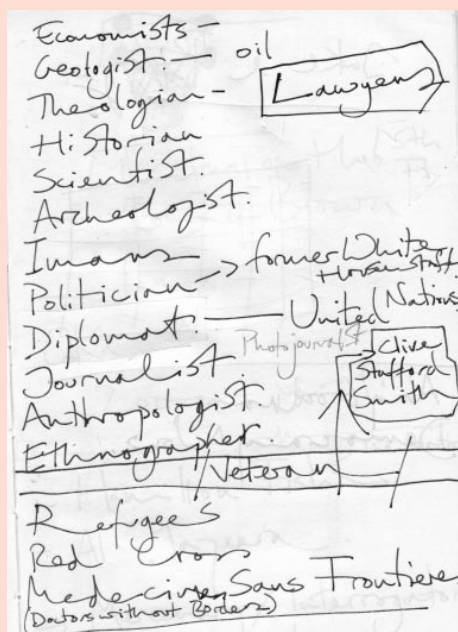 Economists —
Geologist. — oil
Lawyers
Theologian —
Historian
Scientist.
Archeologist.
Imans
Politician → former White House staff
Diplomat. — United Nations
Photojournalist
Journalist.
Clive Stafford Smith
Anthropologist.
Ethnographer.
Veteran
Refugees
Red Cross
Medecines Sans Frontiere
(Doctors without Borders)